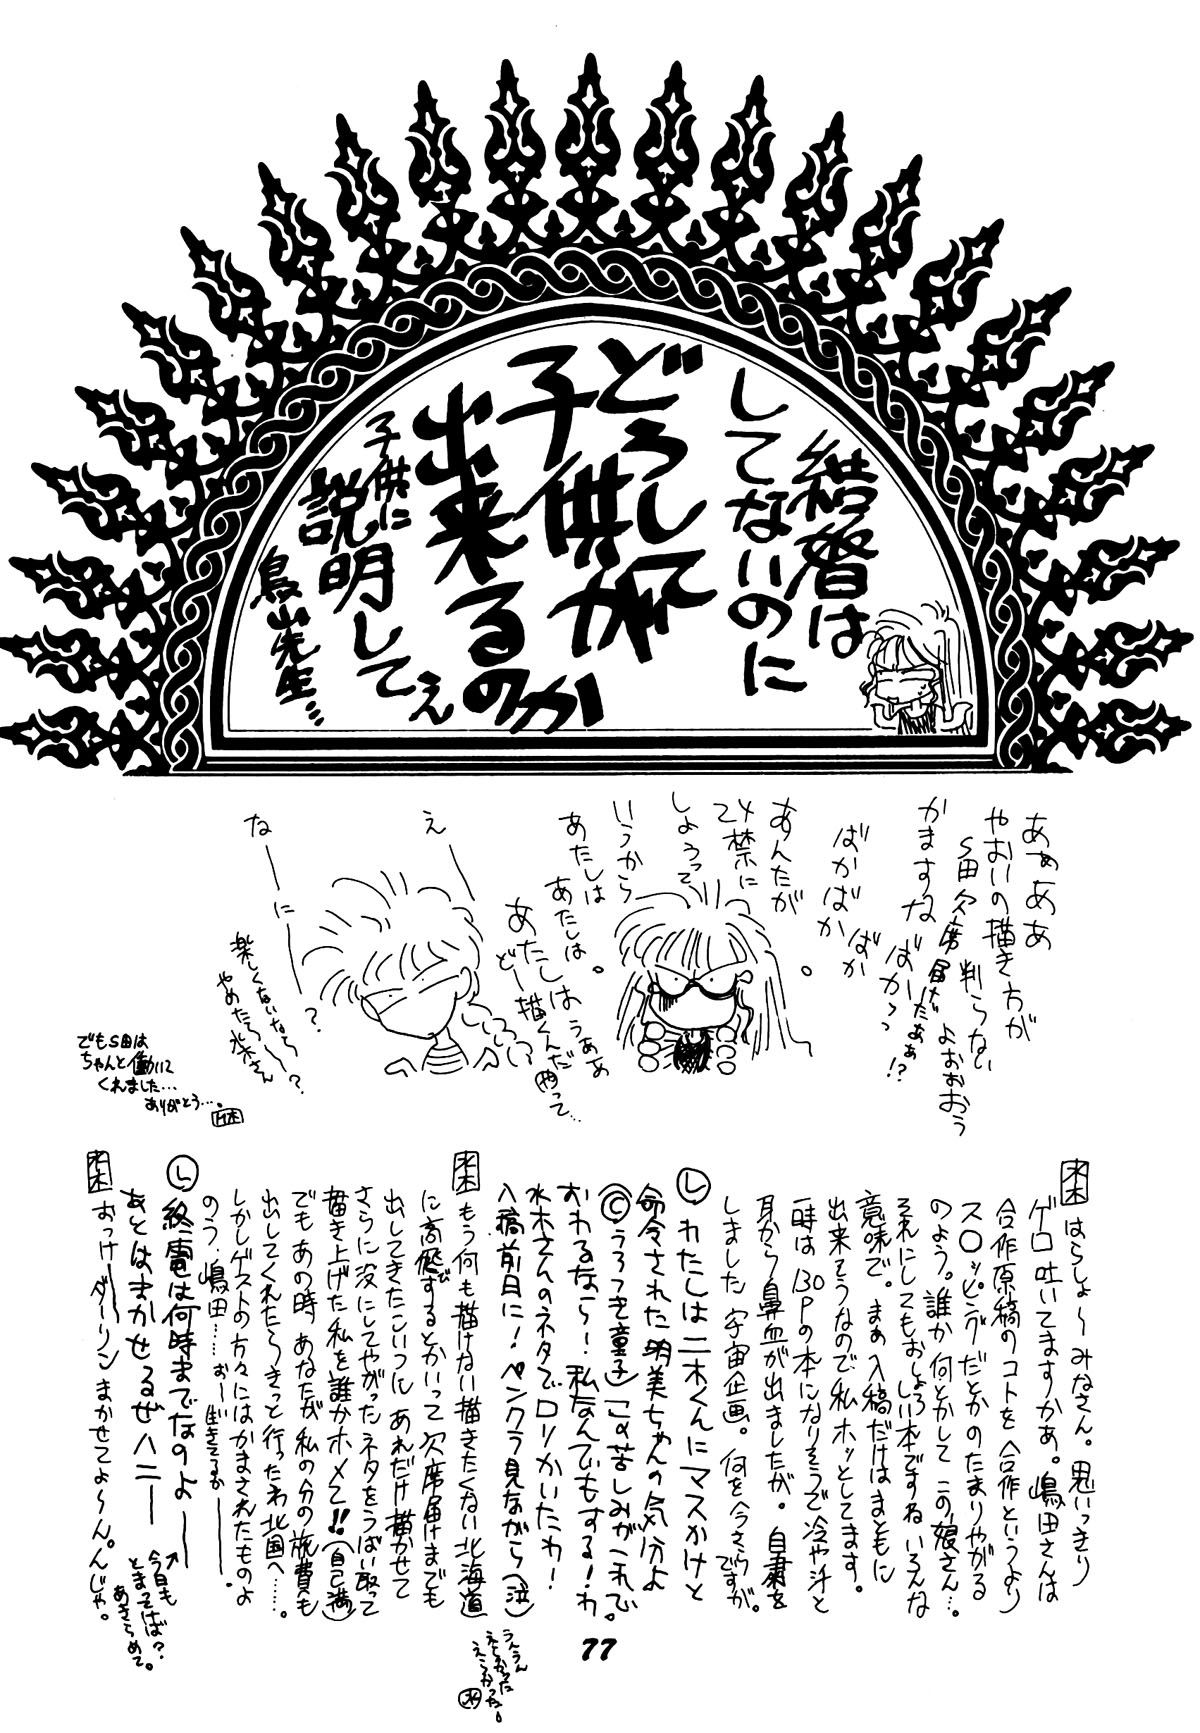 結婚は
してないのに
どうして
子供が
出来るのか
子供に
説明してぇ
鳥山先生…
あぁああ
やおいの描き方が
判らない
よぉぉおう
S田欠席届だぁぁ!?
かますな ばーかっっ
ばかばか
ばか
あんたが
ソ禁に
して
しようって
いうから
あたしは
あたしは
あたしはうああ
どー描くんだ
やって…
え——
な——に——?
楽しくないなら〜?
やめたら〜
水木さん
でもS田は
ちゃんと働いて
くれました…
ありがとう…。
水木 はらしょ〜みなさん。思いっきり
ゲロ吐いてますかあ。嶋田さんは
合作原稿のコトを合作というより
ス○ッピングだとかのたまりやがる
のよう。誰か何とかしてこの娘さん…。
それにしてもおしょろい本ですね いろんな
意味で。まぁ入稿だけはまともに
出来そうなので私ホッとしてます。
一時は130Pの本になりそうで冷や汗と
耳から鼻血が出ましたが。自粛を
しました宇宙企画。何を今さらですが。
し わたしは二木くんにマスかけと
命令された明美ちゃんの気分よ
(©うろつき童子)この苦しみがこれで
おわるなら〜!私なんでもする!わ。
水木さんのネタでロリかいたわ!
入稿前日に!ペンクラ見ながら(泣)
水木 もう何も描けない描きたくない北海道
に高飛びするとかいって欠席届けまでも
出してきたこいつに あれだけ描かせて
さらに没にしてやがったネタをうばい取って
描き上げた私を誰かホメて!!(自己満)
でもあの時 あなたが私の分の旅費も
出してくれたらきっと行ったわ北国へ…。
しかしゲストの方々にはかまされたものよ
のう、嶋田……おー生きてるか———。
し 終電は何時までなのよ———
あとはまかせるぜハニ——
↑今日も
とまってそば?
あきらめて。
水木 おっけーダーリンまかせてよ〜ん。んじゃ。
うんうん
えらかった
えらかった!
水
77